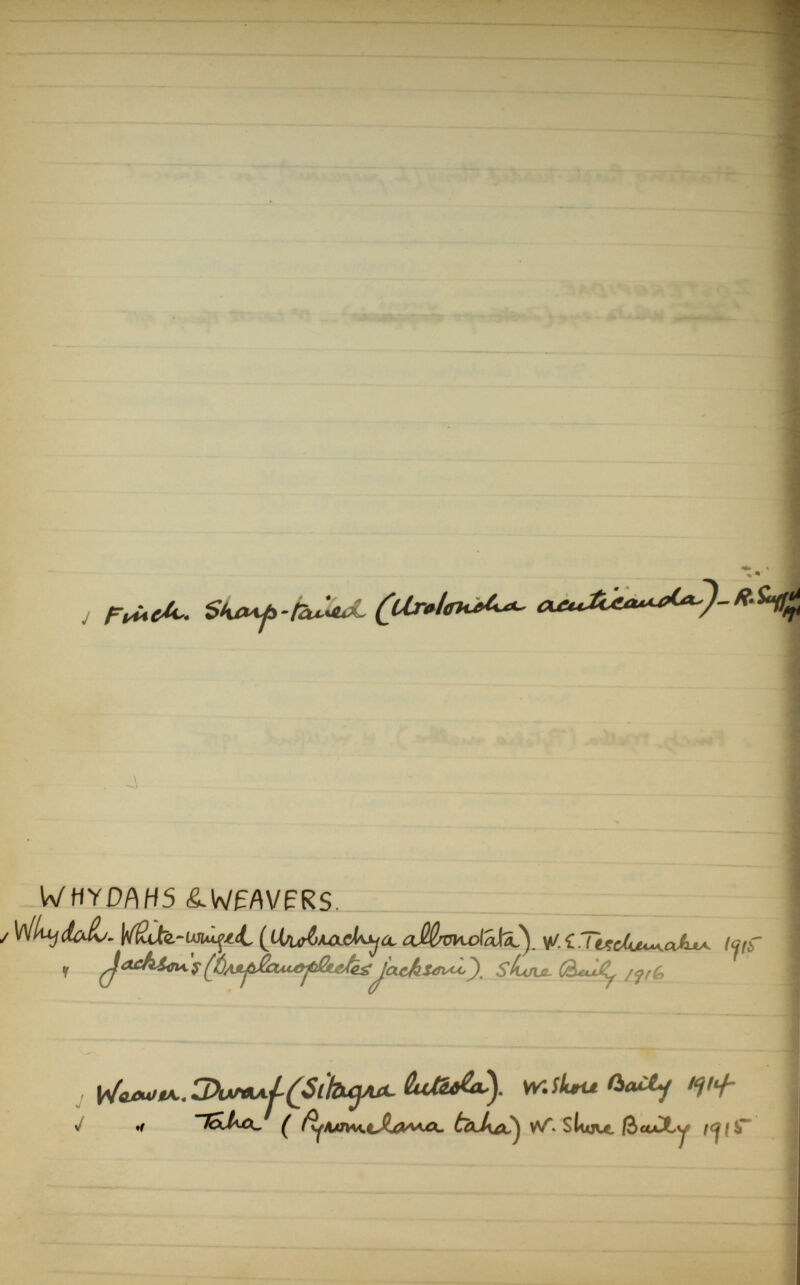 √ Finch. Sharp-tailed (Uroloncha acuticauda)-R.
WHYDAHS & WEAVERS.
√ Whydah. White-winged (Urobrachya albonotata). W.C. Teschemaker 1915
" Jackson's (Drepanoplectes jacksoni). Shore Baily 1916
√ Weaver. Dwarf (Sitagra luteola). W. Shore Baily 1914
√ " Taha (Pyromelana taha) W. Shore Baily 1915